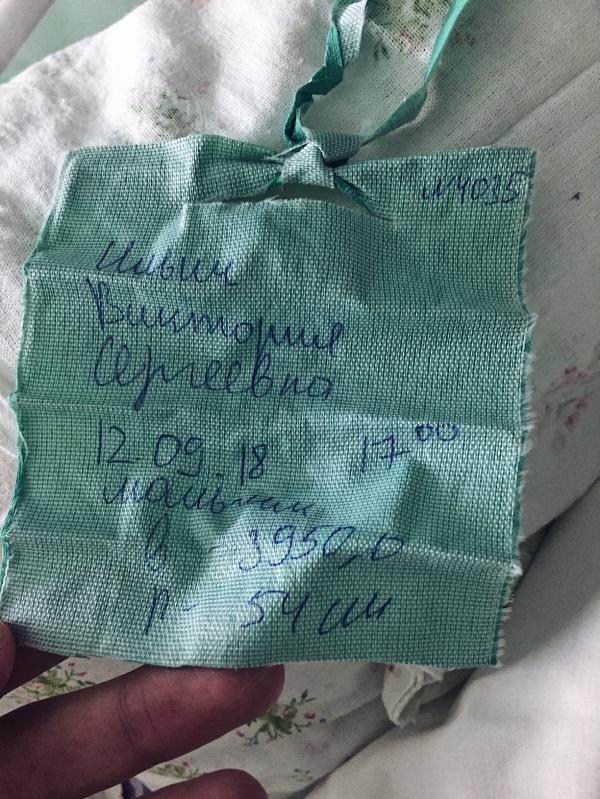 №4035
Ильин
Виктория
Сергеевна
12.09.18 17⁰⁰
мальчик
в - 3950,0
р - 54 см